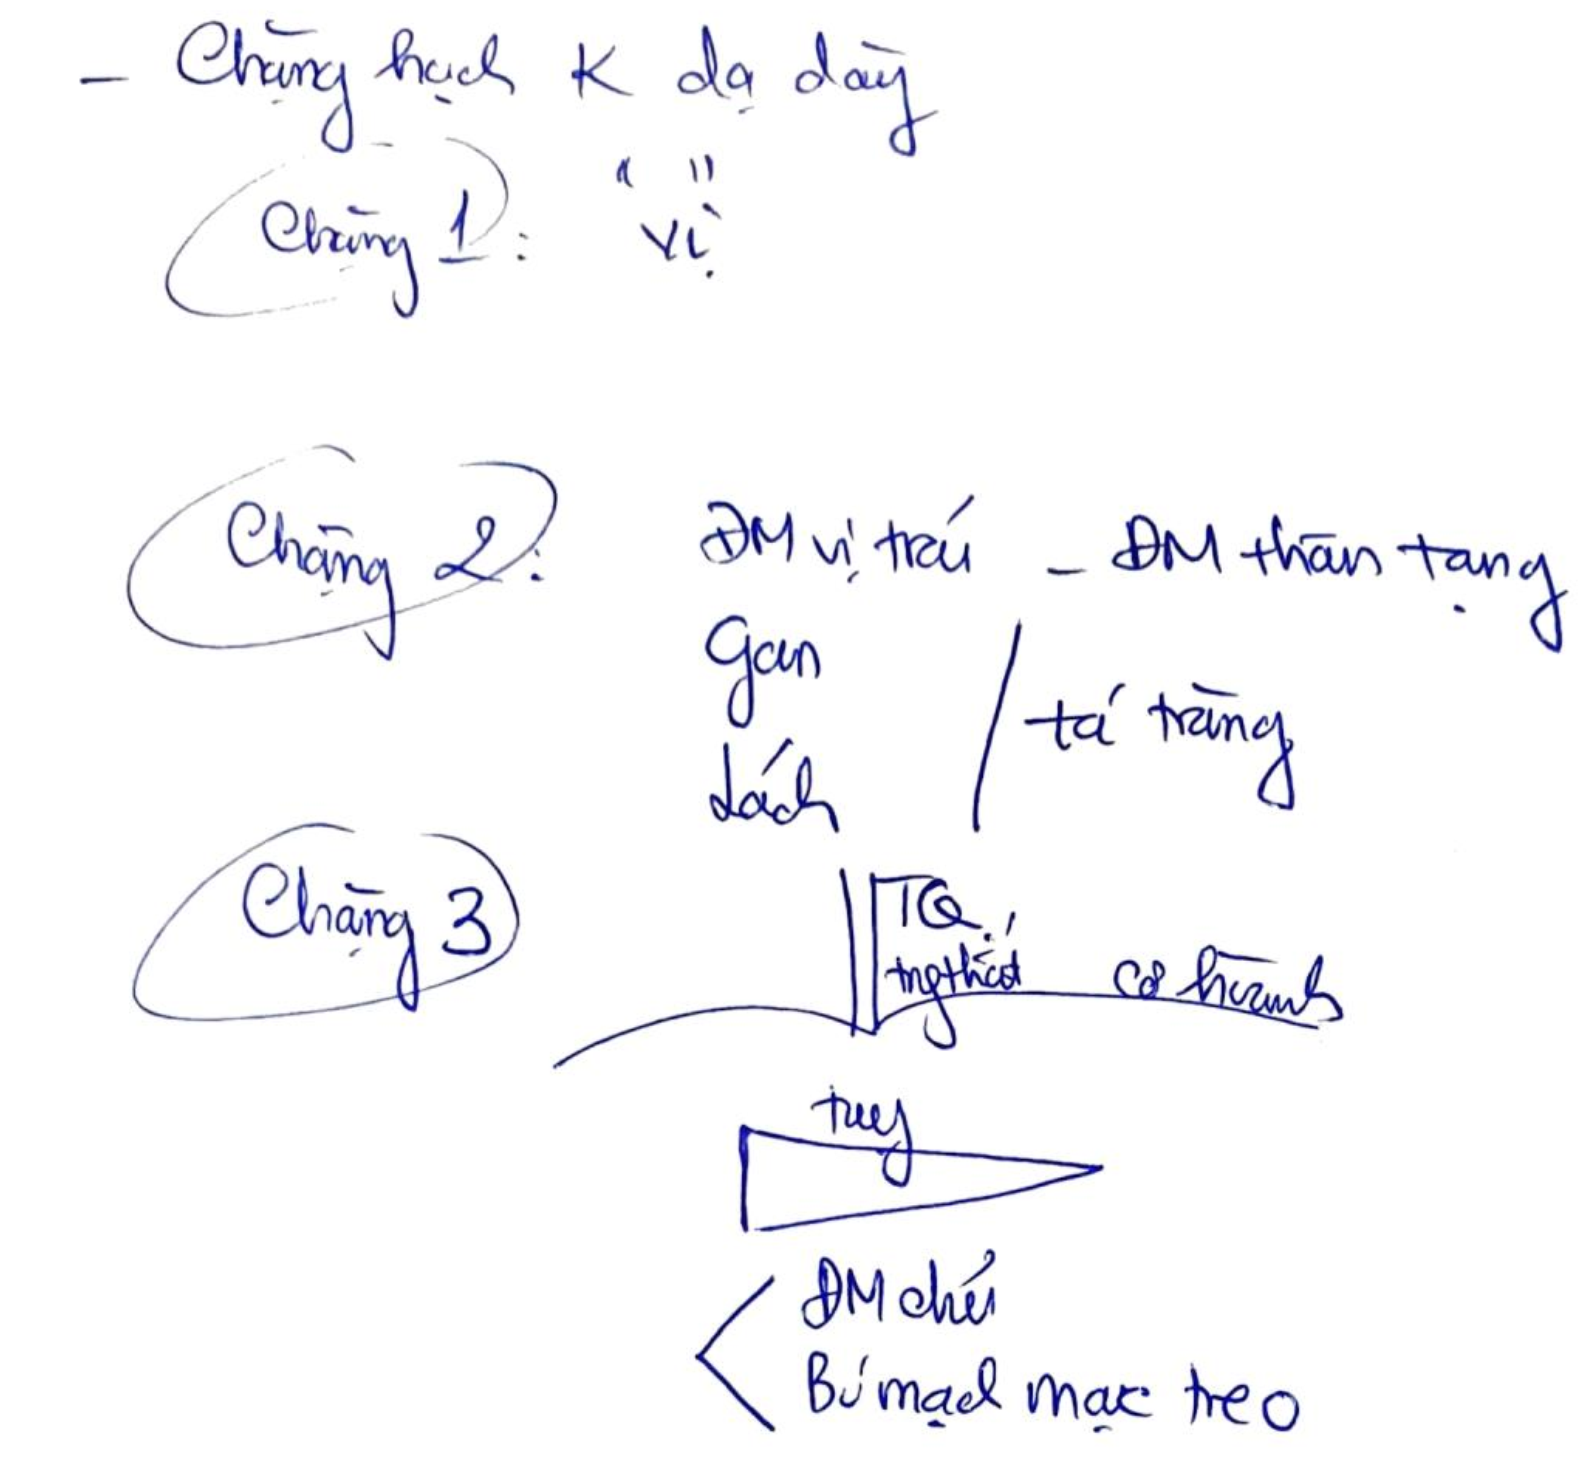 - Chặng hạch K dạ dày
Chặng 1: "vị"
Chặng 2: ĐM vị trái - ĐM thân tạng
Gan
Lách
tá tràng
Chặng 3
TQ.
cơ hoành
tụy
ĐM chủ
Bó mạch mạc treo